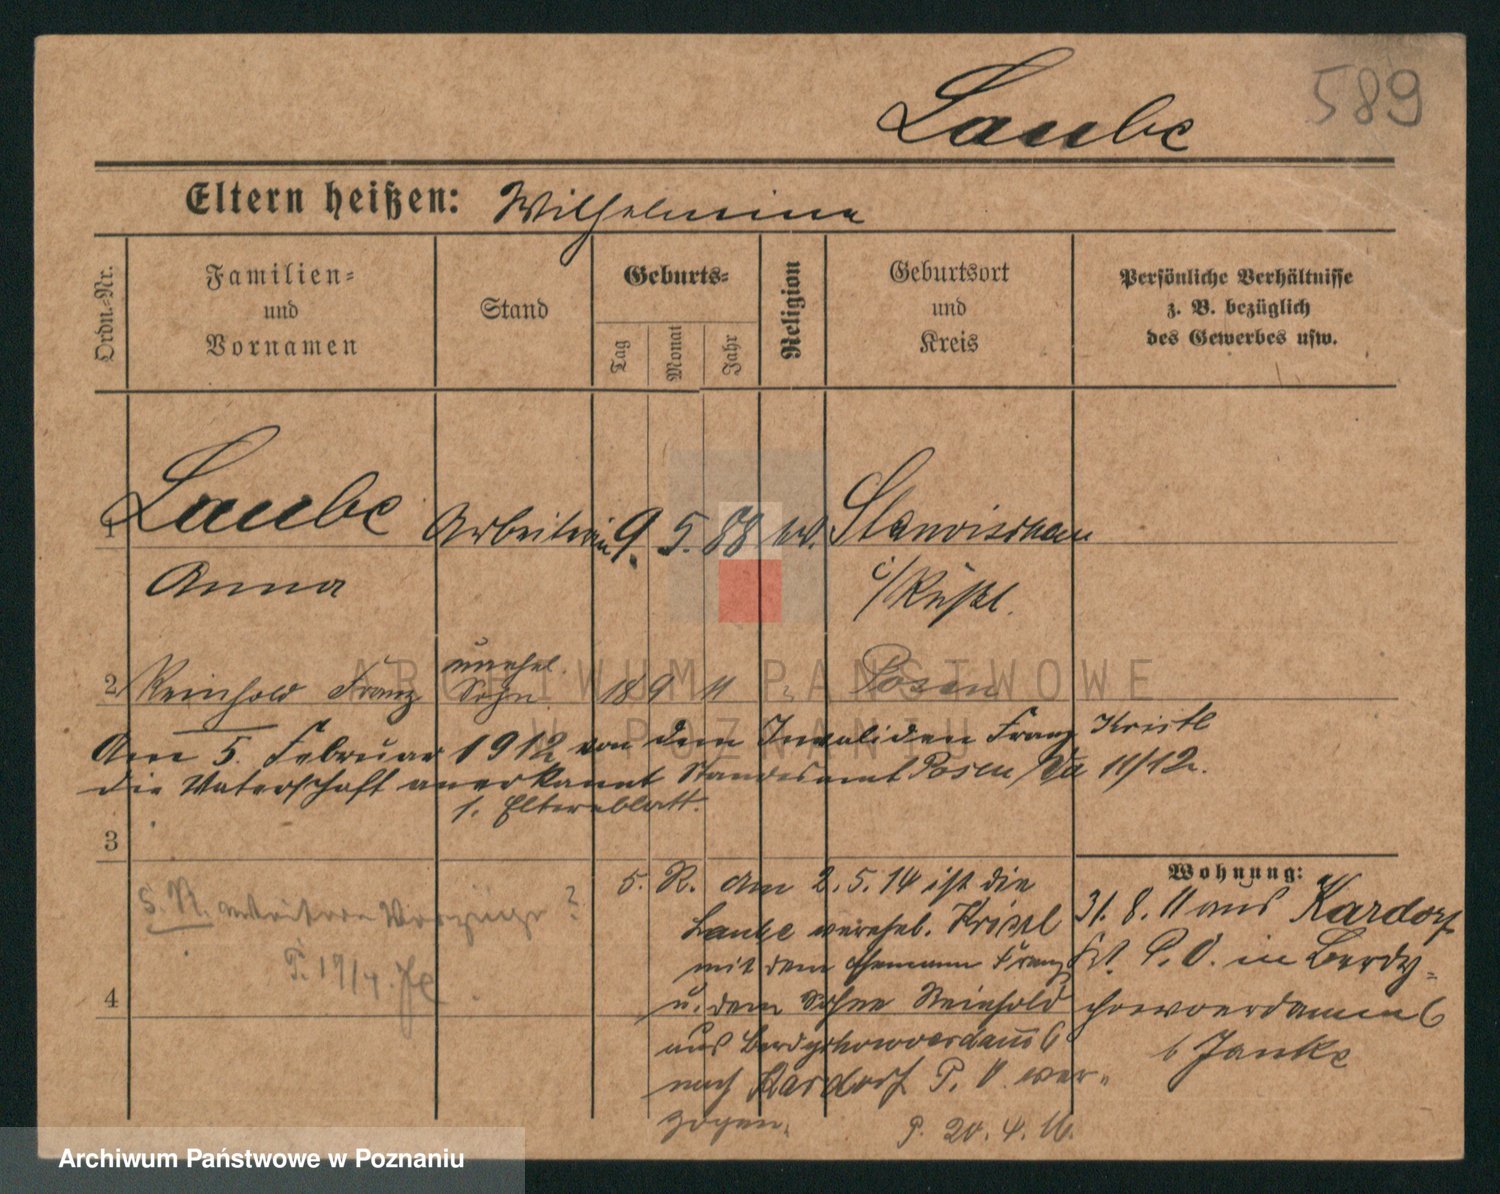 589
Laube
Eltern heißen: Wilhelmine
Ordn.-Nr.
Familien-
und
Vornamen
Stand
Geburts-
Tag
Monat
Jahr
Religion
Geburtsort
und
Kreis
Persönliche Verhältnisse
z. B. bezüglich
des Gewerbes usw.
1 Laube Arbeiterin 9. 5. 88 ev.
Anna
i/
2 Reinhold Franz unehel. Sohn 18 9 11 Posen
Am 5. Februar 1912 von dem Invaliden Franz
die Vaterschaft anerkannt Standesamt Posen 11/12.
s. Elternblatt.
3
Wohnung:
S. R. weitere ?
P. 19/4.
4
S. R. Am 2. 5. 14 ist die
Laube verehel.
mit dem Ehemann Franz
u. dem Sohne Reinhold
aus 6
nach Kardorf P. O. ver-
zogen.
P. 20. 4. 16.
31. 8. 11 aus Kardorf
P. O. in Berdy-
chowoerdamm 6
b Janke
ARCHIWUM PAŃSTWOWE
W POZNANIU
Archiwum Państwowe w Poznaniu